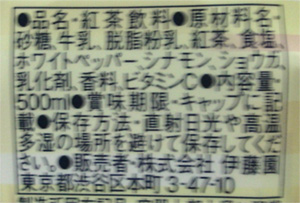 ●品名・紅茶飲料●原材料名・
砂糖、牛乳、脱脂粉乳、紅茶、食塩、
ホワイトペッパー、シナモン、ショウガ、
乳化剤、香料、ビタミンC●内容量・
500ml●賞味期限・キャップに記
載●保存方法・直射日光や高温
多湿の場所を避けて保存してくだ
さい。●販売者・株式会社 伊藤園
東京都渋谷区本町3-47-10